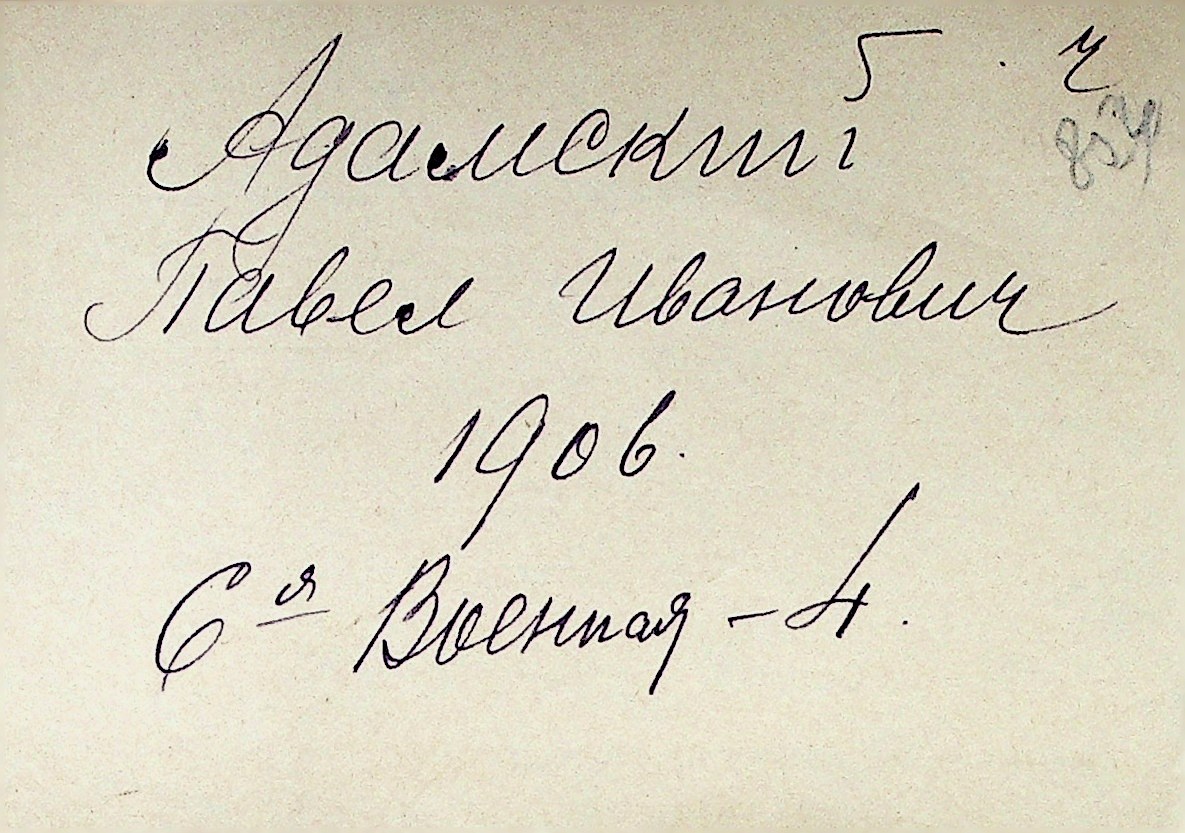 5 . ч
Адамский
Павел Иванович
1906.
6 я Военная - 4.